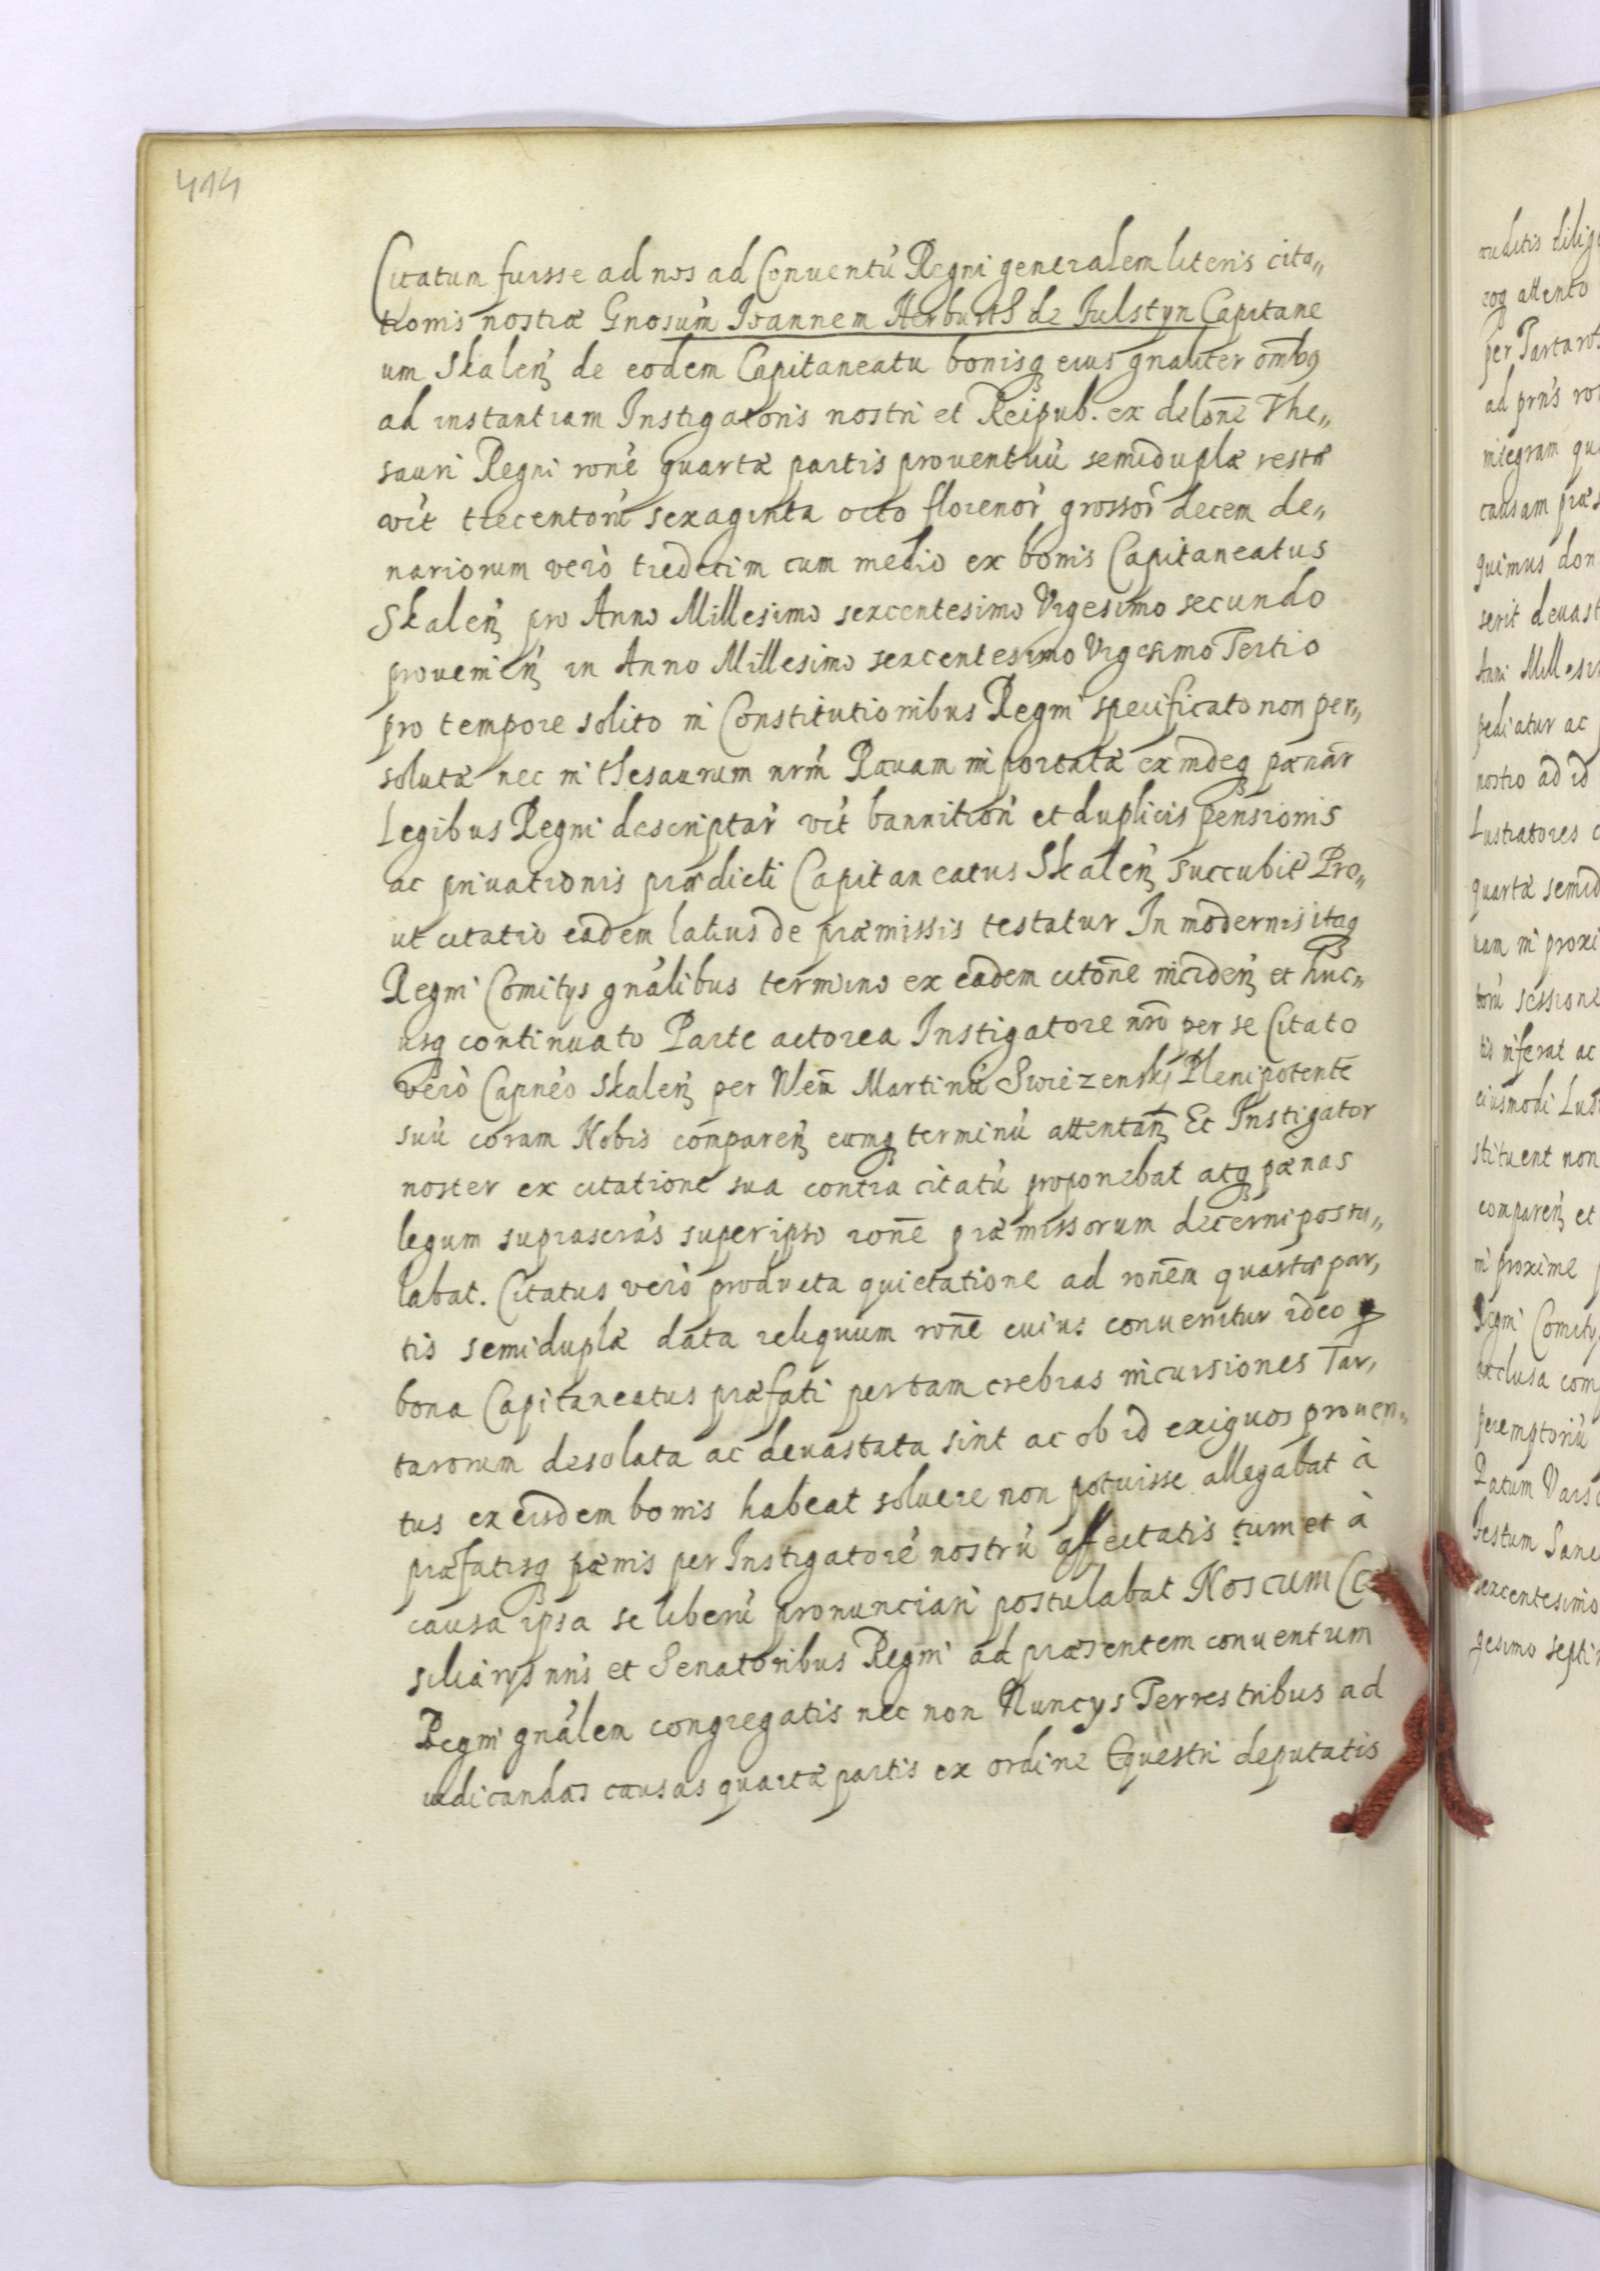 414
Citatum fuisse ad nos ad Conventú Regni generalem literis cita„
tionis nostræ Gnosúm Ioannem Herburth de Fulstyn Capitane
um Skaleń de eodem Capitaneatu bonisq eius gnaliter omībq
ad instantiam Instigatoris nostri et Reipub. ex delōne The„
sauri Regni rōné quartæ partis proventuú semiduplæ restæ
vít trecentorú sexaginta octo florenor̃ grossor̃ decem de„
nariorum verò tredecim cum medio ex bonis Capitaneatus
Skaleń pro Anno Millesimo sexcentesimo Vigesimo secundo
provenień in Anno Millesimo sexcentesimo Vigesimo Tertio
pro tempore solito in Constitutionibus Regni specificato non per„
solutæ nec in thesaurum nrḿ Ravam importatæ exindeq pænar̃
Legibus Regni descriptar̃ vít bannition̕ et duplicis pensionis
ac privationis prædicti Capitaneatus Skaleń succubit̕ Pro„
ut citatio eadem latius de præmissis testatur In modernis itaq
Regni Comitijs gnálibus termino ex eadem citōne incideń et huc„
usq continuato Parte actorea Instigatore nrō per se Citato
verò Capnéo Skaleń per Nlem̄ Martinú Swiezenski Plenipotentē
suú coram Nobis compareń eumq terminú attentań Et Instigator
noster ex citatione sua contra citatú proponebat atq pænas
legum suprascrás super ipso ronē præmissorum decerni postu„
labat. Citatus verò producta quietatione ad ronēm quartæ par,
tis semiduplæ data reliquum ronē cuius convenitur ideo q
bona Capitaneatus præfati per tam crebras incursiones Tar,
tarorum desolata ac devastata sint ac ob id exiguos proven„
tus ex eisdem bonis habeat solvere non potuisse allegabat à
præfatisq pænis per Instigatorē nostrú affectatis tum et à
causa ipsa se liberú pronunciari postulabat Nos cum Co
siliarijs nrīs et Senatoribus Regni ad præsentem conventum
Regni gnálem congregatis nec non Nuncijs Terrestribus ad
iudicandas causas quartæ partis ex ordine Equestri deputatis
per Tartaros
causam præs
quimus don
serit devast
Anni Millesi
pediatur ac
nostro ad id
Lustratores
quartæ semid
sessione
stituent non
compareń et
in proxime
Regni Comity
Datum Vars
sexcentesimo
gesimo septi